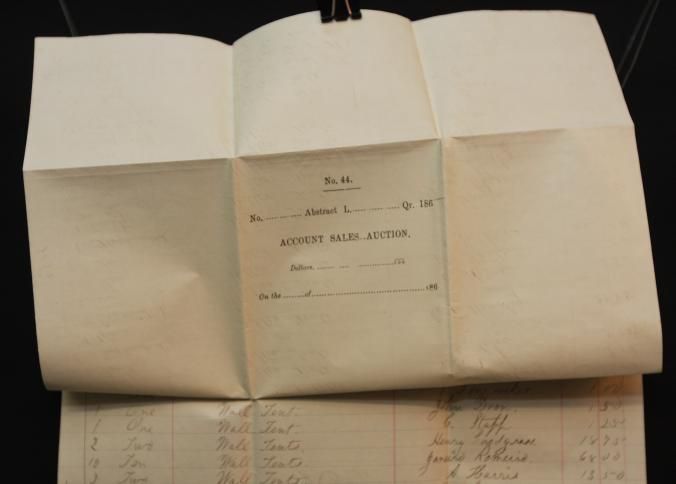 No. 44.
No. ............ Abstract L. ............... Qr. 186
ACCOUNT SALES..AUCTION.
Dollars, ....... .... ..............100
On the ........of.......................................186
1 One Wall Tent. John 1 50
1 One Wall Tent. C. Huff 1 25
2 Two Wall Tents. Henry 18 75
10 Ten Wall Tents. Romero. 64 00
2 Two Wall Tents A Harris 13 50